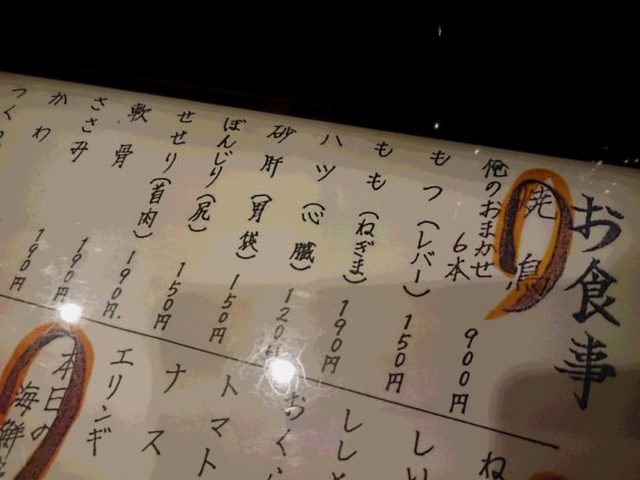 お食事
焼鳥
俺のおまかせ
6本 900円
もつ(レバー) 150円
もも(ねぎま) 190円
ハツ(心臓) 120円
砂肝(胃袋) 150円
ぼんじり(尻) 150円
せせり(首肉) 190円.
軟骨 190円
ささみ 190円
かわ
つく
ね
し
しし
おく
トマト
ナス
エリンギ
本日の
海鮮